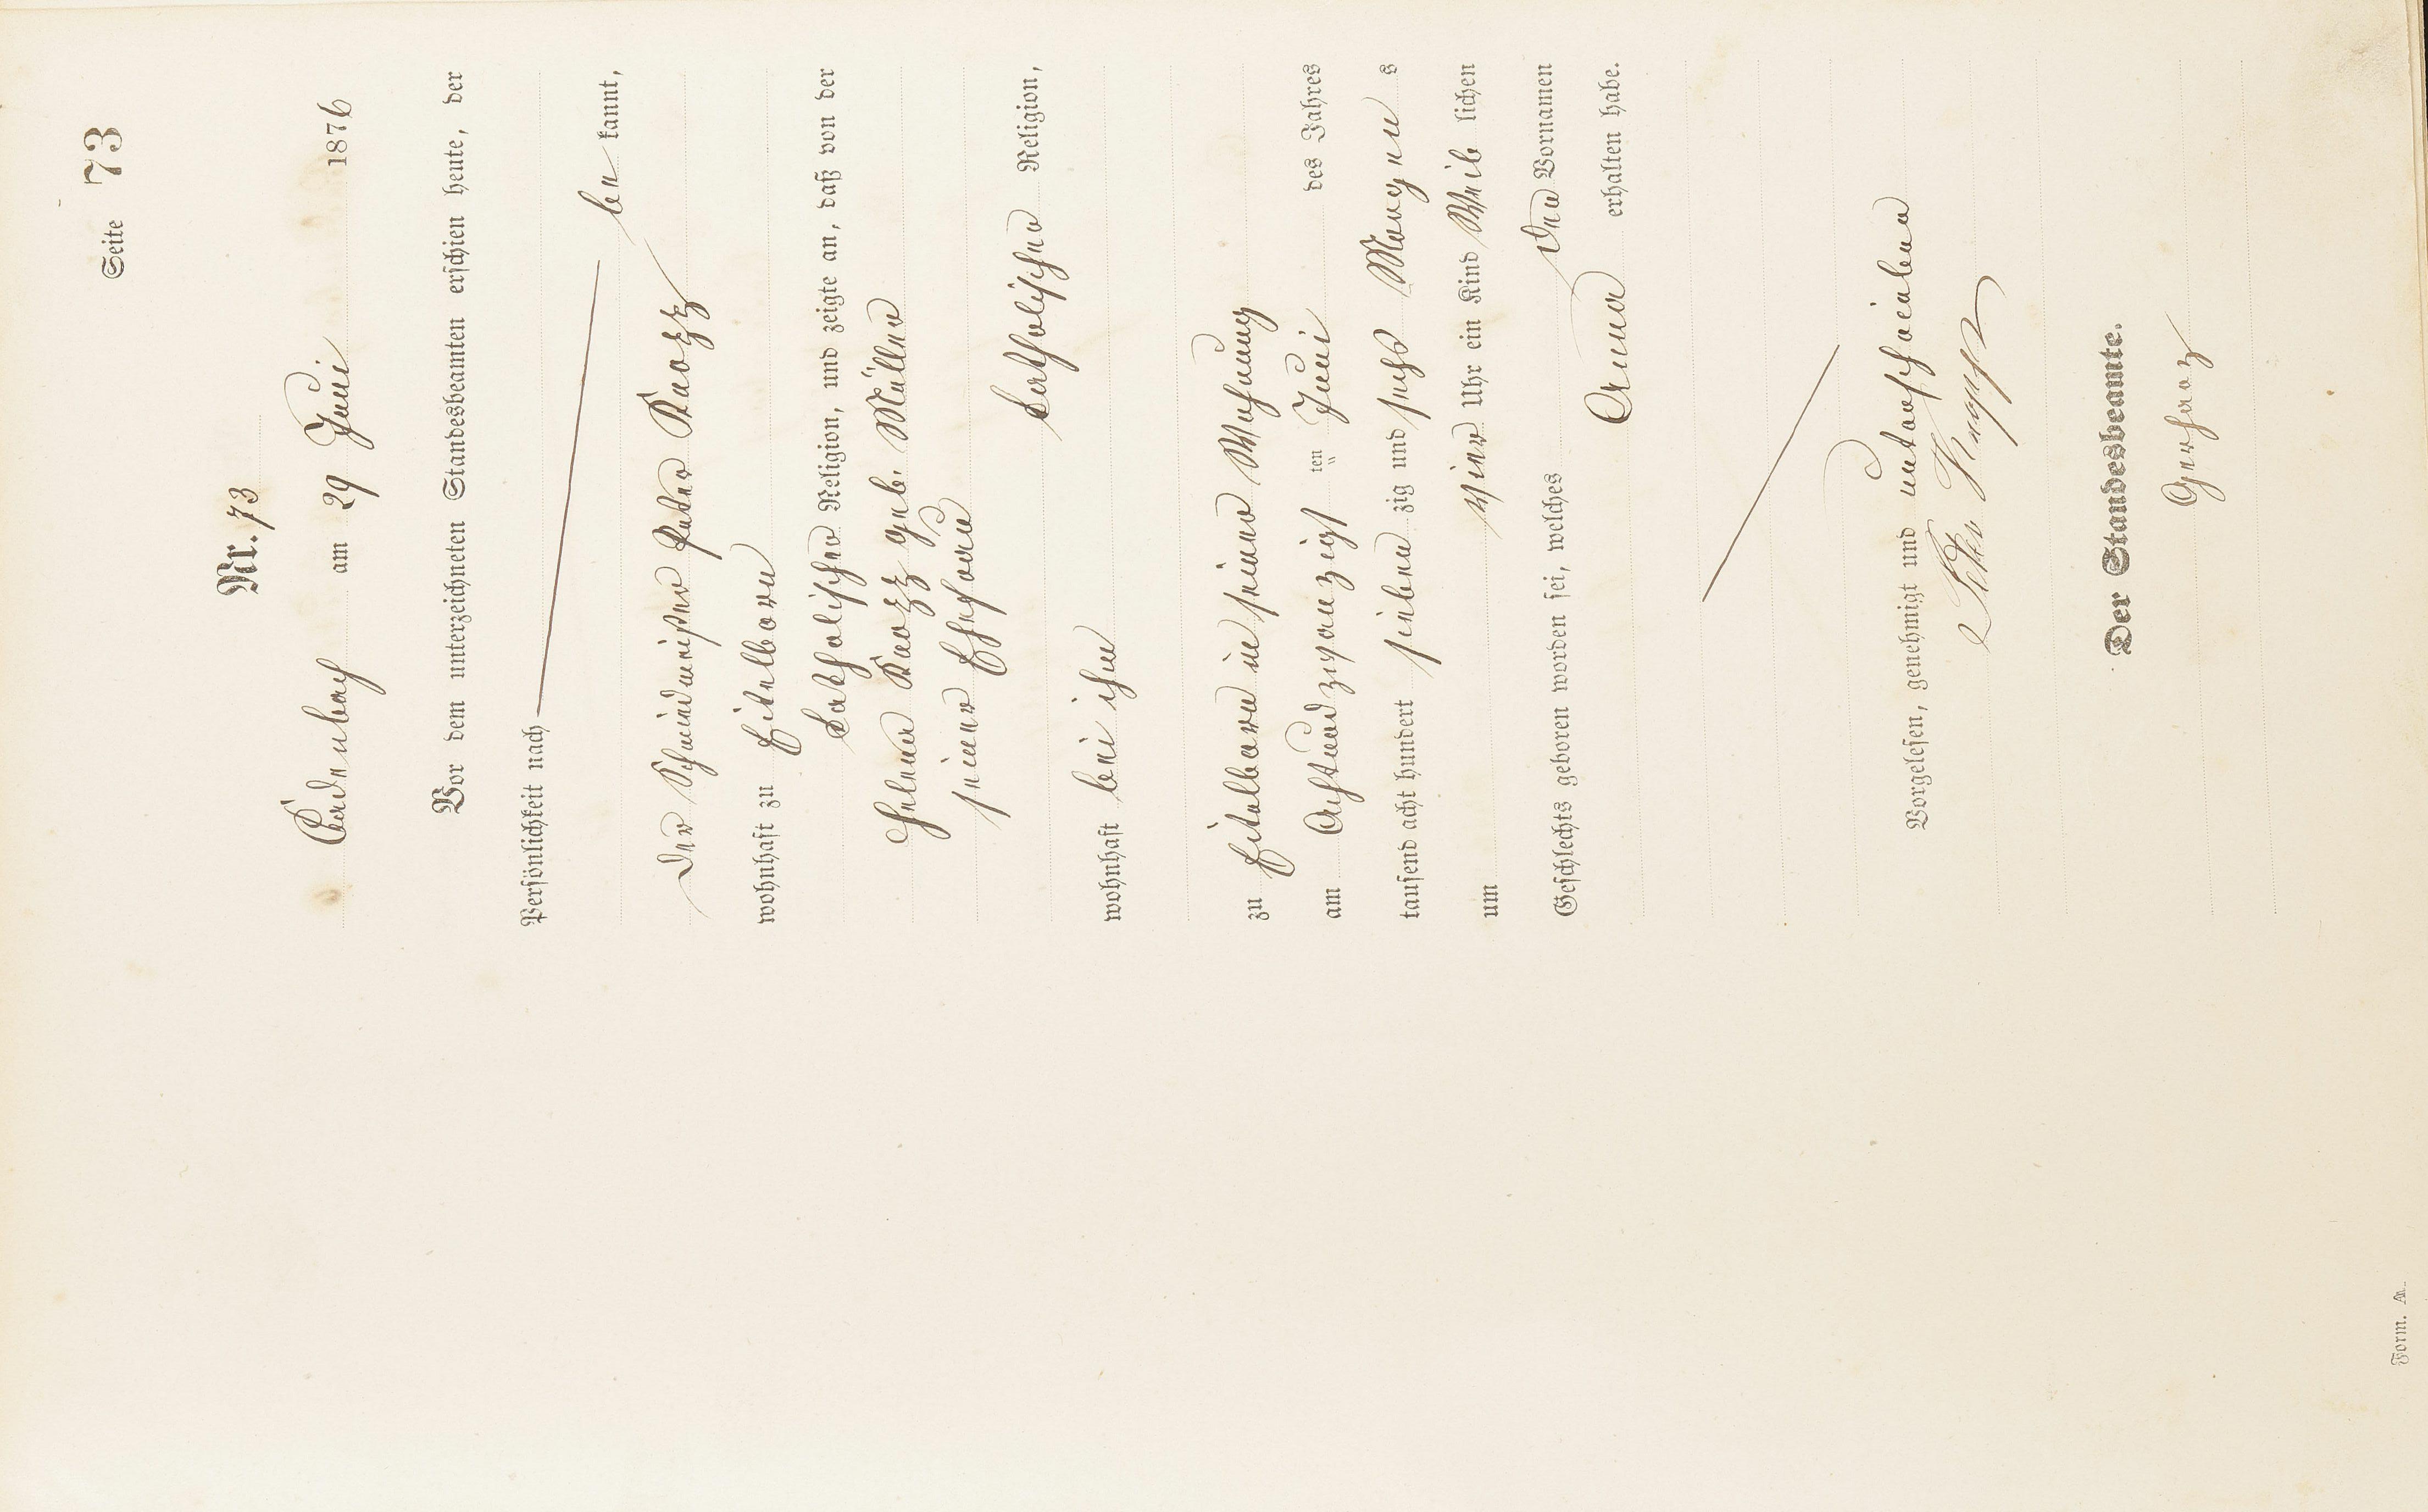 Seite 73
Nr. 73
Cadenbach am 29 Juni 1876
Vor dem unterzeichneten Standesbeamten erschien heute, der
Persönlichkeit nach
be kannt,
der Schmiedmeister Peter
wohnhaft zu Eitelborn
katholischer Religion, und zeigte an, daß von der
Helena geb. Müller
seiner Ehefrau
katholischer Religion,
wohnhaft bei ihm
zu Eitelborn in seiner Wohnung
am Achtundzwanzigst ten Juni des Jahres
tausend acht hundert sieben zig und sechs Morgen s
um vier Uhr ein Kind Weib lichen
Geschlechts geboren worden sei, welches den Vornamen
Anna erhalten habe.
Vorgelesen, genehmigt und unterschrieben
Peter
Der Standesbeamte.
Gerharz
Form. A.